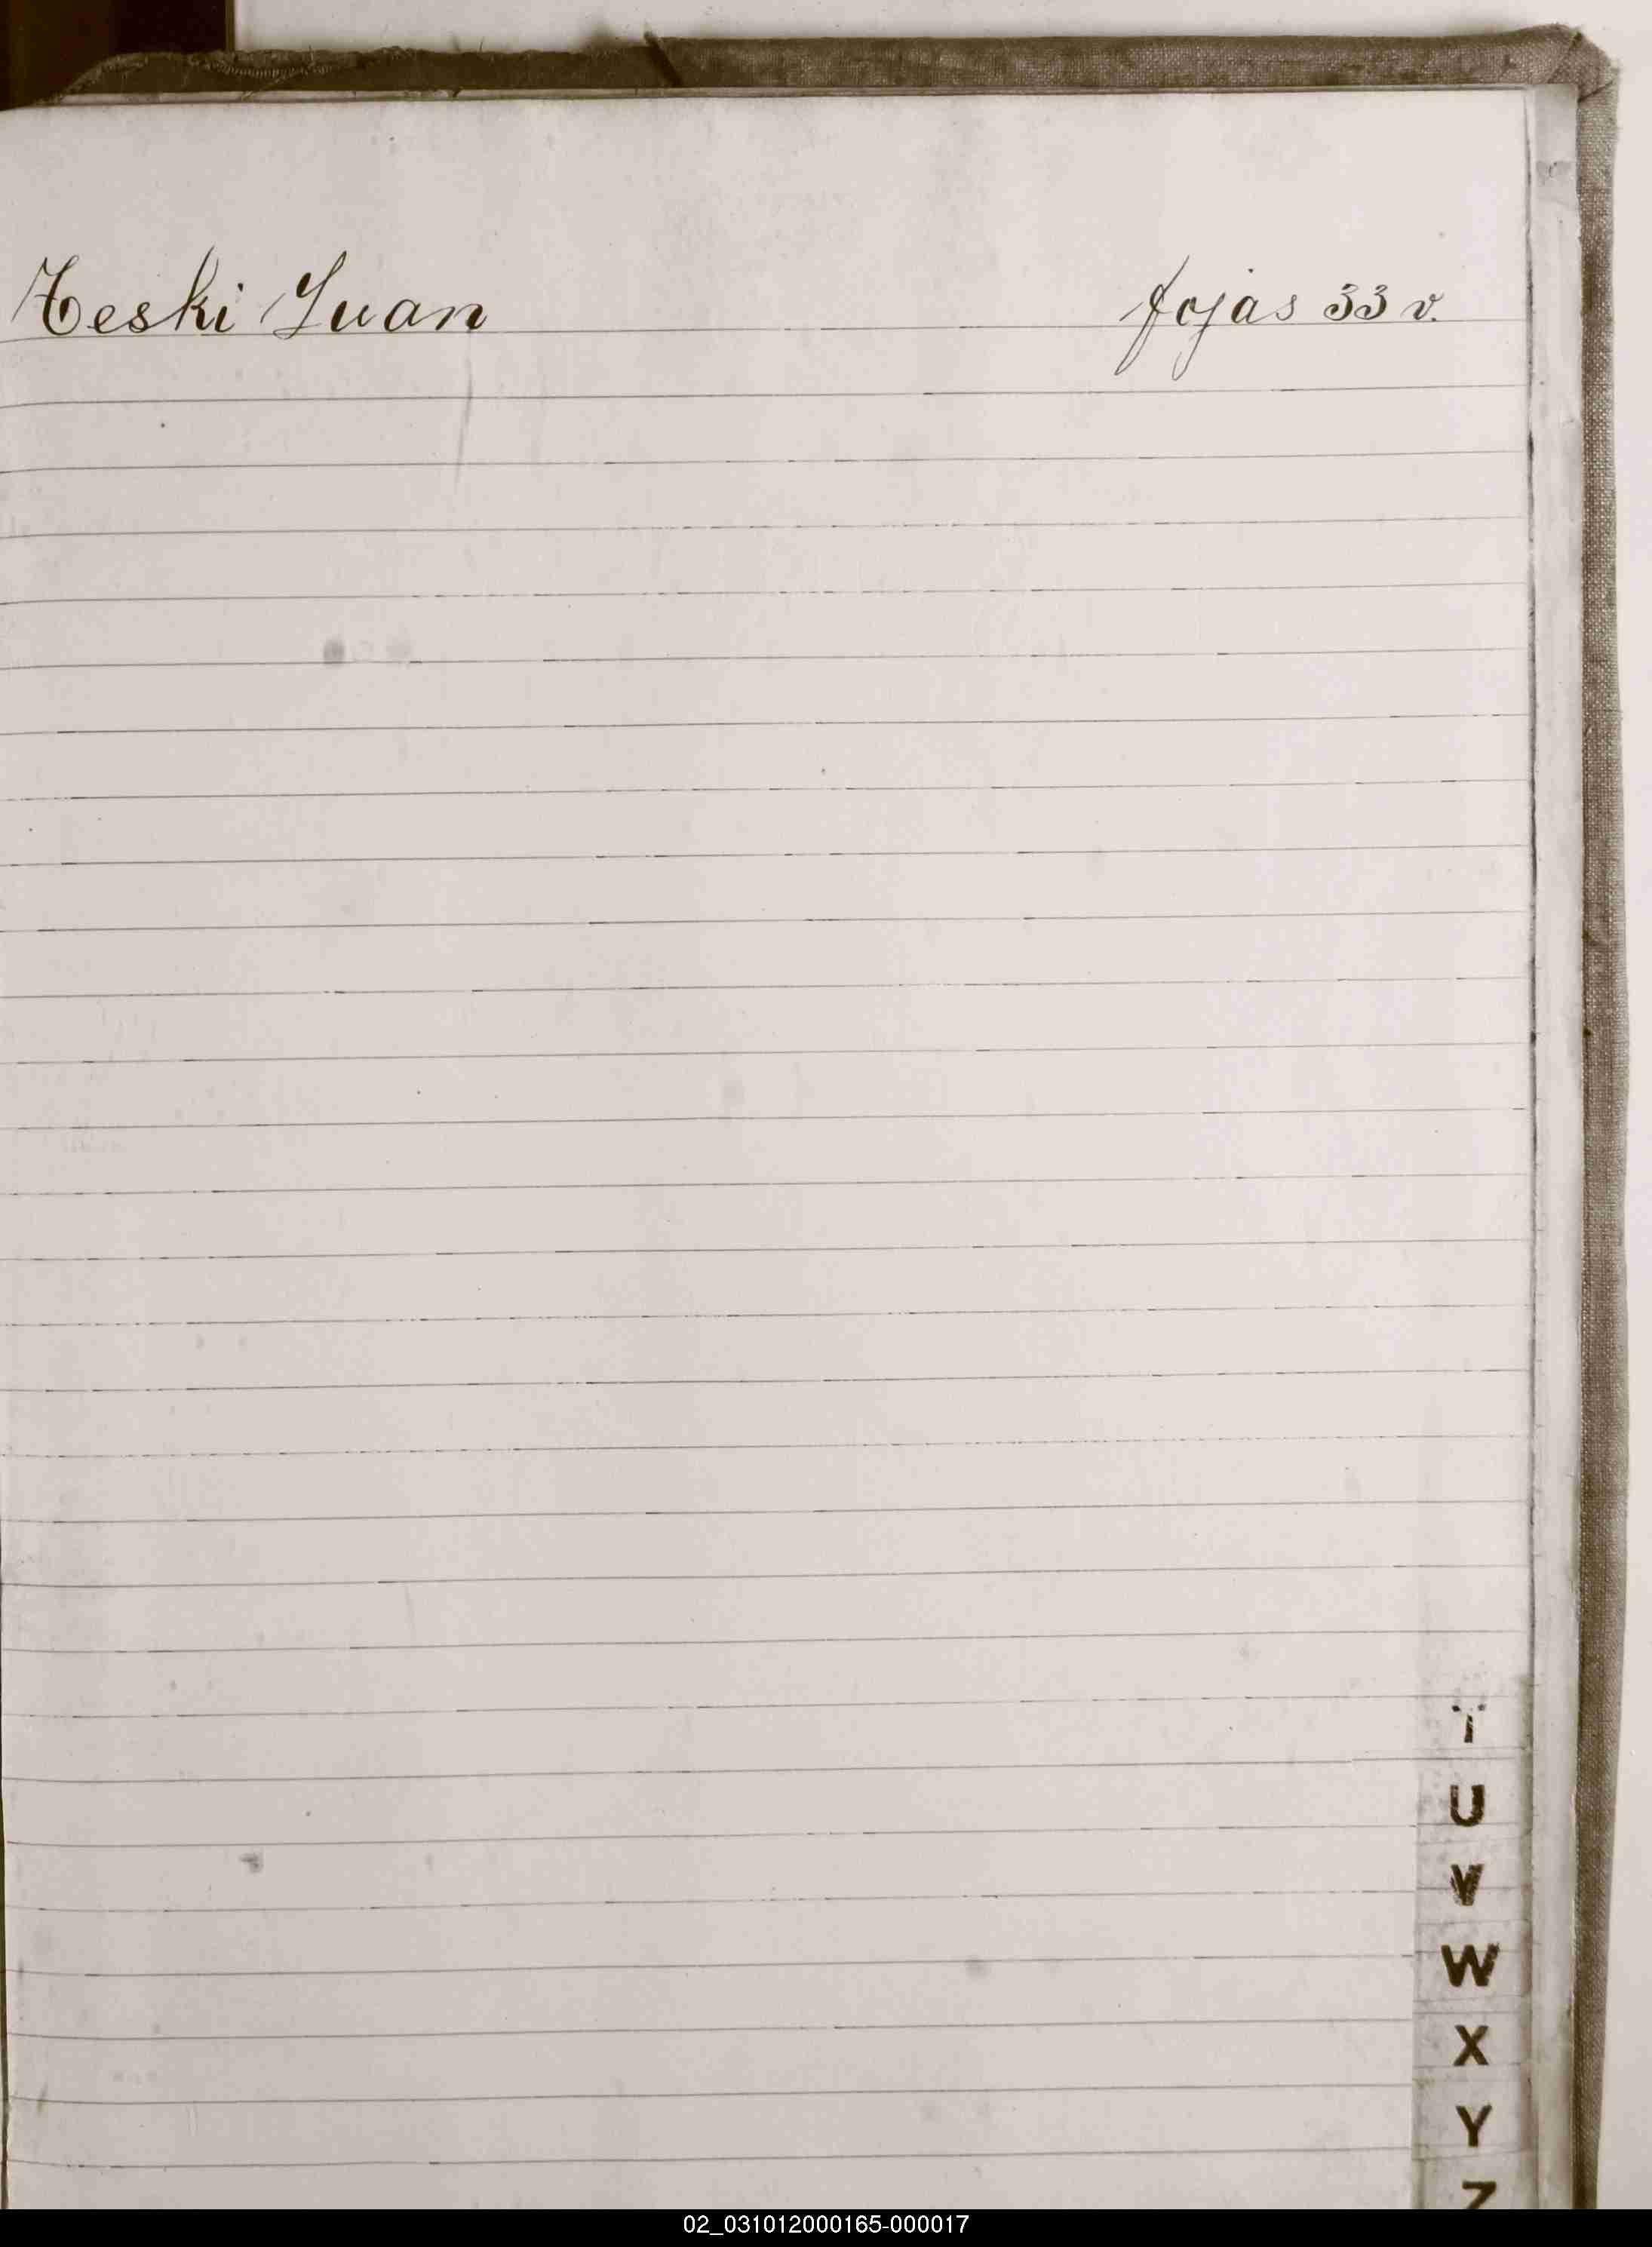 Teski Juan fojas 33 v.
T
U
V
W
X
Y
Z
02_031012000165-000017